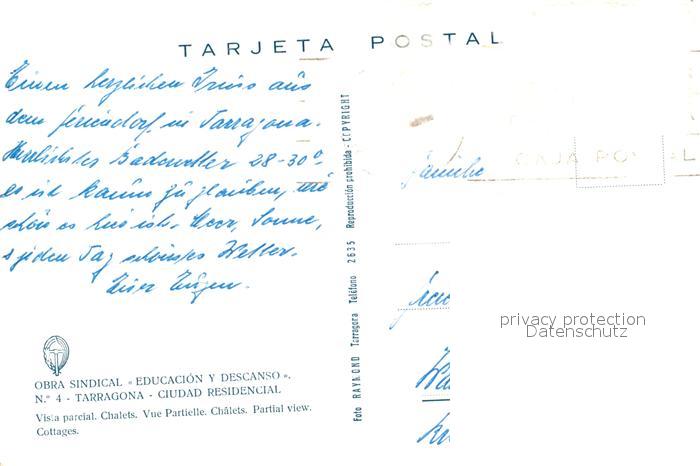 TARJETA POSTAL
Einen herzlichen Gruss aus
dem Feriendorf in Tarragona.
Herrlichstes Badewetter 28-30°,
es ist kaum zu glauben, wie
schön es hier ist. Meer, Sonne,
jeden Tag schönstes Wetter.
Euer Eugen.
CAJA POSTAL
Familie
privacy protection
Datenschutz
Foto RAYMOND Tarragona Teléfono 2635 Reproducción prohibida - COPYRIGHT
OBRA SINDICAL «EDUCACIÓN Y DESCANSO».
N.º 4 - TARRAGONA - CIUDAD RESIDENCIAL
Vista parcial. Chalets. Vue Partielle. Châlets. Partial view.
Cottages.